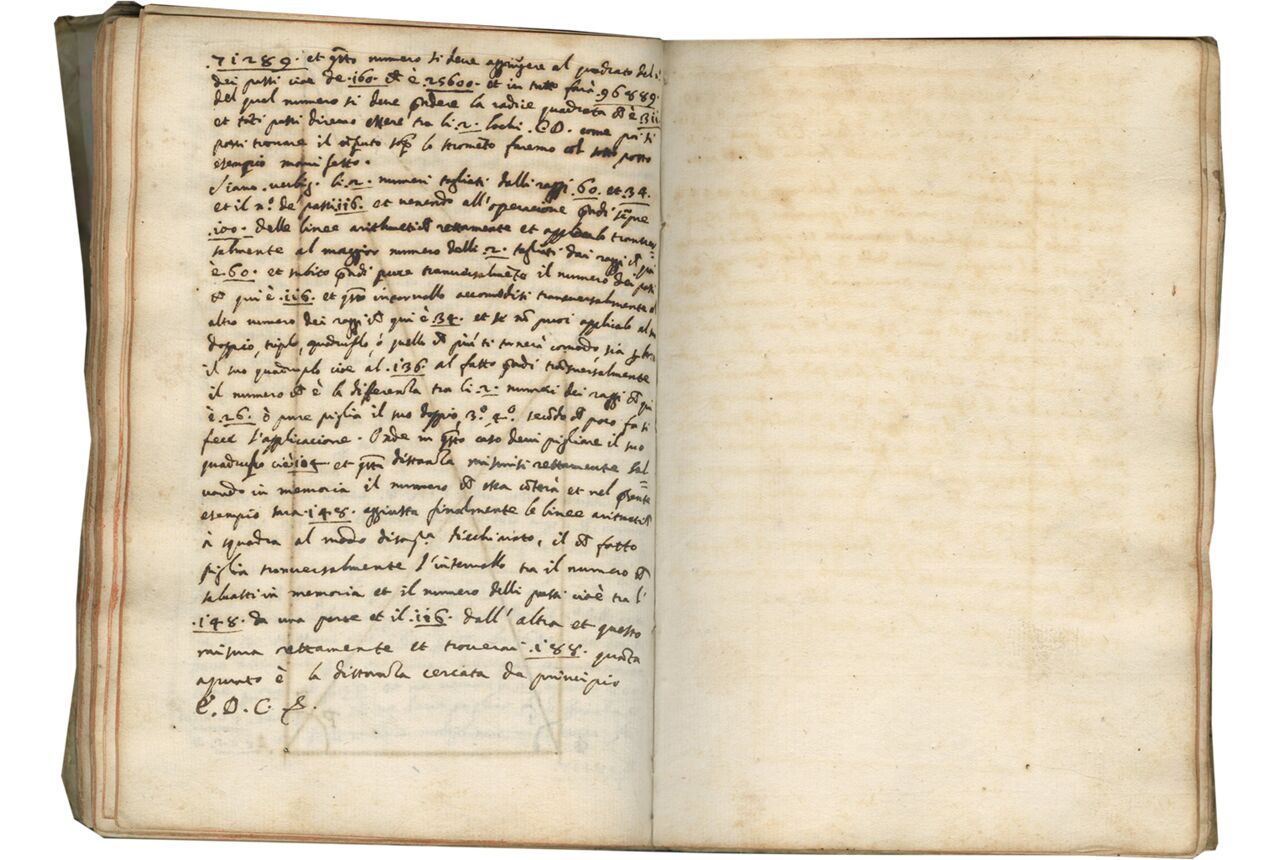 .71289. et q̃sto numero si deve aggiugere al quadrato del n.
dei passi cioe de .160. cħ è .25600. et in tutto farà .96889.
del qual numero si deve p̃ndere la radice quadrata cħ è 311
et tãti passi diremo essere tra li .2. lochi .C D. come poi si
possi trovare il cõputo sop.ª lo stromẽto faremo col sotto posto
esempio manifesto.
Siano .verbig. li .2. numeri tagliati dalli raggi .60. et 34.
et il n.º de passi 116. et venendo all'operacione p̃ndi sẽpre
.100. delle linee aritħmeticħ rettamente et applicalo transver=
salmente al maggior numero delli .2. tagliati dai raggi cħ qui
è 60. et subito p̃ndi pure transversalmẽte il numero dei passi
cħ qui è .116. et q̃sto intervallo accomodisi transversalmente al
altro numero dei raggi cħ qui è 34. et se nõ puoi applicalo al suo
doppio, triplo, quadruplo, ò quello cħ piu ti tornerà comodo, sia
il suo quadruplo cioe al .136. al fatto p̃ndi trãsversalmente
il numero cħ è la differenza tra li .2. numeri dei raggi cħ qui
è .26. ò pure piglia il suo doppio, 3.º 4.º secõdo cħ poco fa si
fece l'applicacione. Onde in q̃sto caso devi pigliare il suo
quadruplo cioè 104 et q̃sta distanza misurisi rettamente sal=
vando in memoria il numero cħ essa cõterà et nel p̃sente
esempio sara .148. aggiusta finalmente le linee aritmeticħ
à squadra al modo di sop.ª dicchiarato, il cħ fatto
piglia transversalmente l'intervallo tra il numero cħ
salvasti in memoria et il numero delli passi cioè tra l'
.148. da una parte et il .116. dall'altra et questo
misura rettamente et troverai .188. quãta
apunto è la distanza cercata da principio
C. D. C. &.